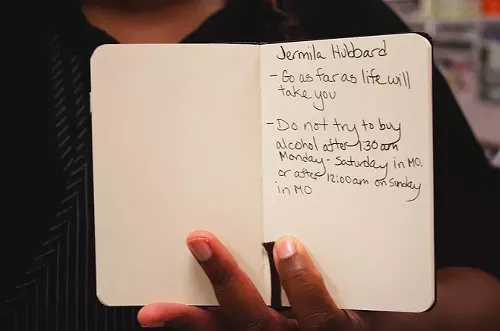 Jermila Hubbard
- Go as far as life will
take you
- Do not try to buy
alcohol after 1:30am
Monday - Saturday in MO.
or after 12:00am on Sunday
in MO